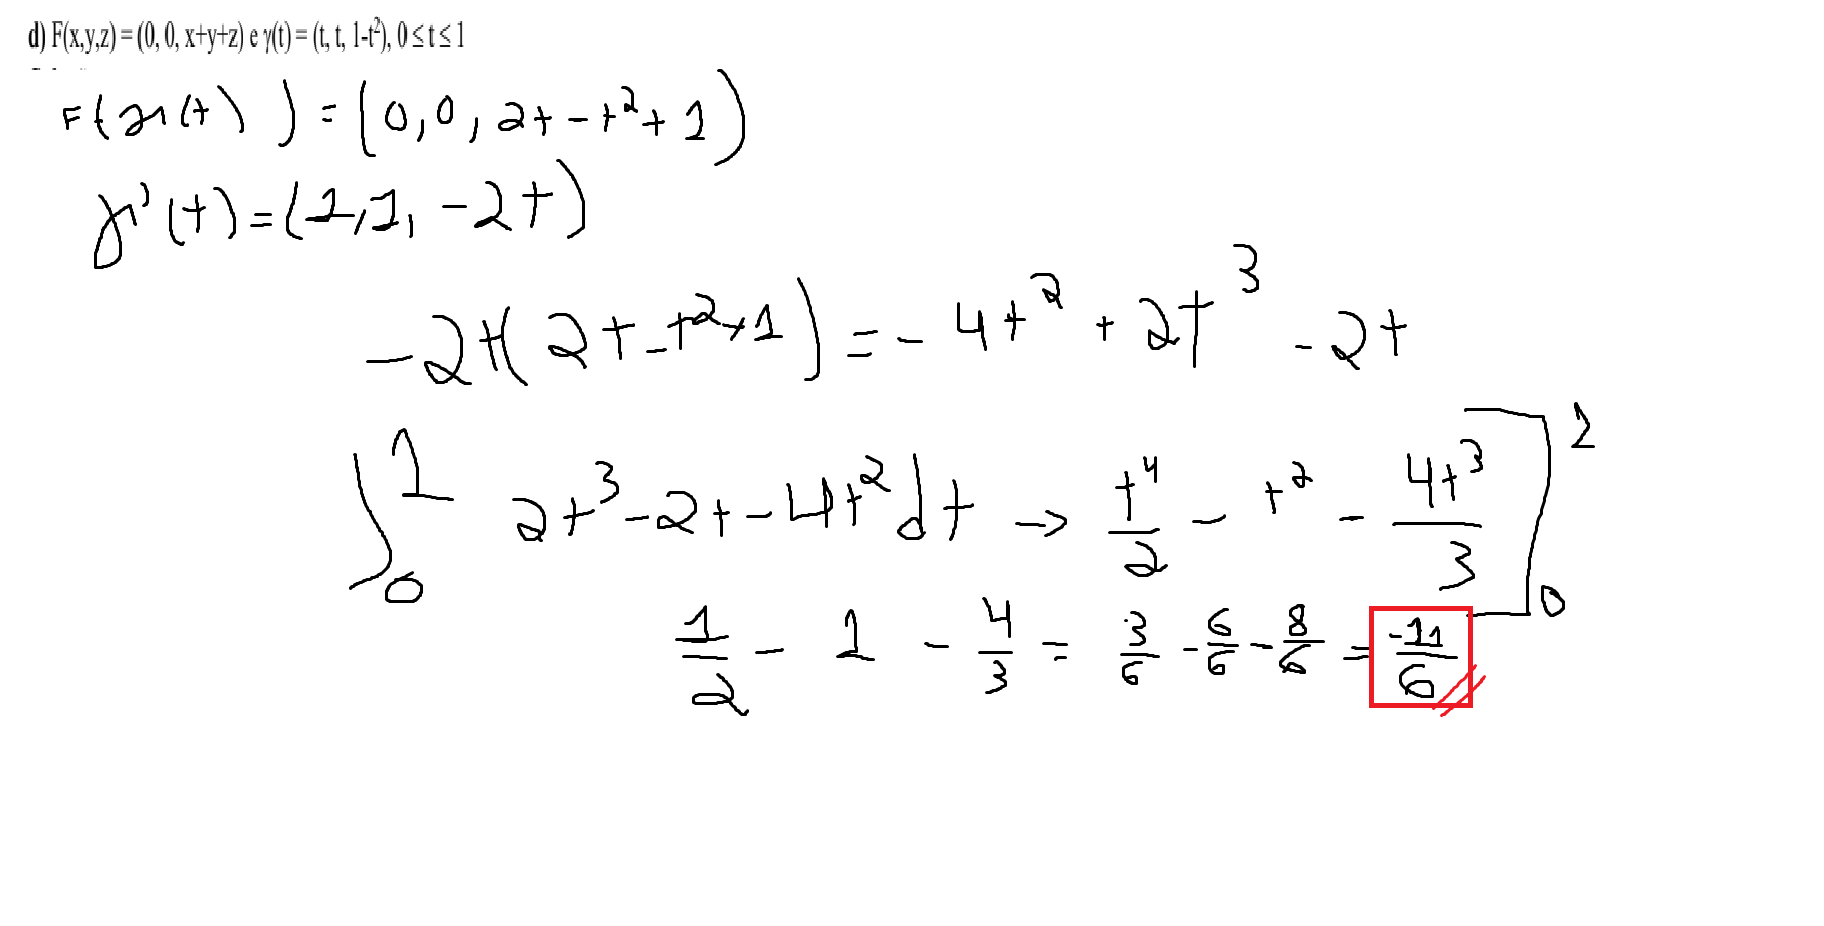 d) F(x,y,z) = (0, 0, x+y+z) e γ(t) = (t, t, 1-t²), 0 ≤ t ≤ 1
F(γ(t)) = (0,0, 2t - t² + 1)
γ'(t) = (1,1, -2t)
-2t(2t - t² + 1) = -4t² + 2t³ - 2t
∫₀¹ 2t³ - 2t - 4t² dt → t⁴/2 - t² - 4t³/3 ]₀¹
1/2 - 1 - 4/3 = 3/6 - 6/6 - 8/6 = -11/6